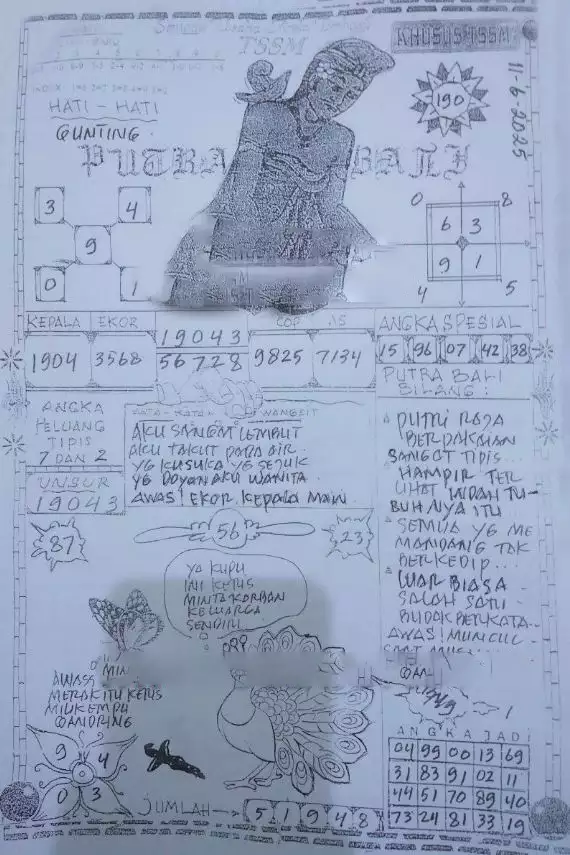 TSSM
KHUSUS TSSM
11-6-2025
190
HATI - HATI
GUNTING.
PUTRA BALI
3 4
9
0 1
0 8
6 3
9 1
4 5
KEPALA EKOR
1904 3568
19043
56728
COP AS
9825 7134
ANGKA SPESIAL
15 96 07 42 38
ANGKA
PELUANG
TIPIS
7 DAN 2
UNSUR
19043
KATA - KATA WANGSIT
AKU SANGAT LEMBUT
AKU TAKUT PADA AIR.
YG KUSUKA YG SEJUK
YG DOYAN AKU WANITA.
AWAS! EKOR KEPALA MAIN.
PUTRA BALI
BILANG:
PUTRI RAJA
BERPAKAIAN
SANGAT TIPIS..
HAMPIR TER
LIHAT INDAH TU-
BUHNYA ITU
SEMUA YG ME
MANDANG TAK
BERKEDIP...
LUAR BIASA
SALAH SATU
BUDAK BERKATA..
AWAS! MUNCUL
87
56
23
YA KUPU
INI KETUS
MINTA KORBAN
KELUARGA
SENDIRI
AWASS
MERAK ITU KETUS
9 4
0 3
JUMLAH
5 1 9 4 8
ANGKA JADI
04 99 00 13 69
31 83 91 02 11
44 51 70 89 40
73 24 81 33 19